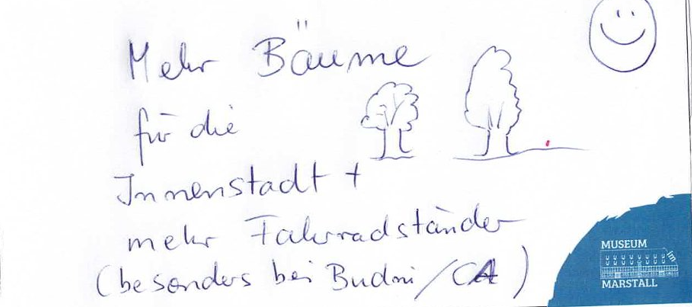 Mehr Bäume
für die
Innenstadt +
mehr Fahrradständer
(besonders bei Budni/CA)
MUSEUM
MARSTALL